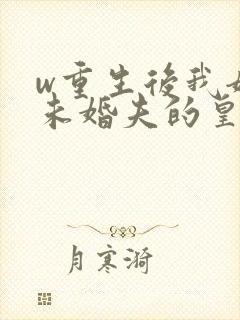 w重生後我
未婚夫的皇
月寒漪